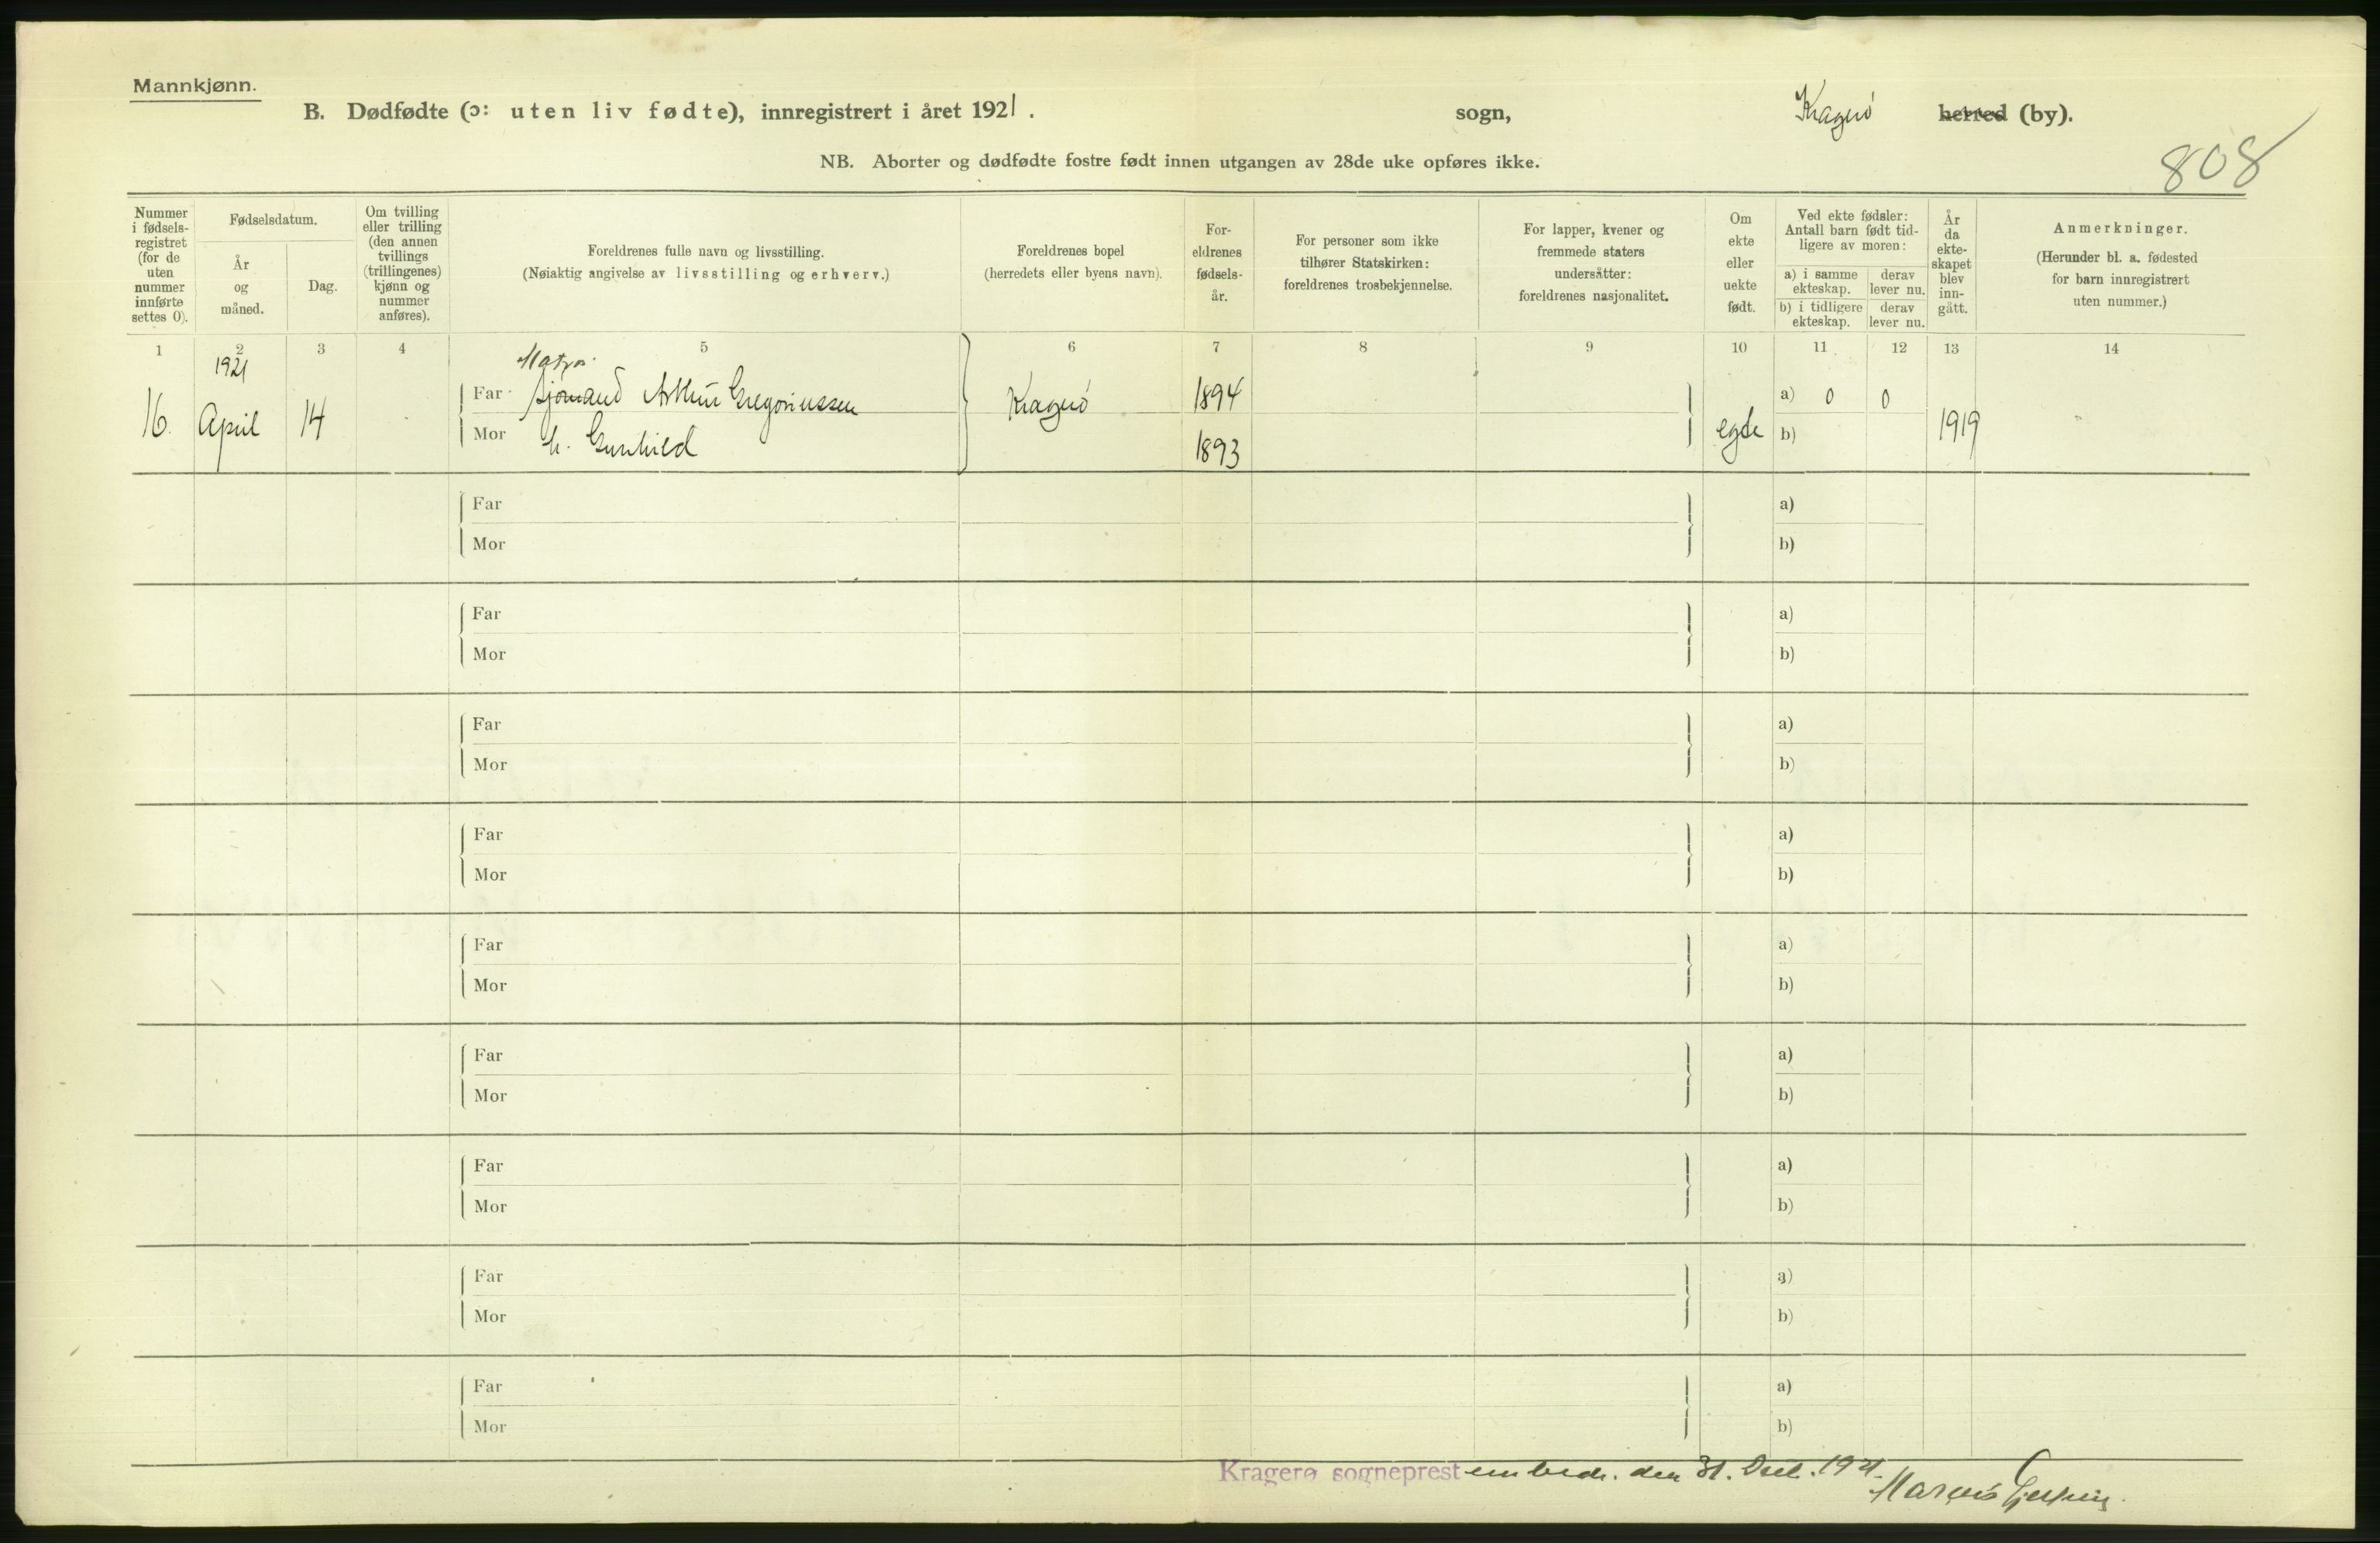 Mannkjønn.
B. Dødfødte (ɔ: uten liv fødte), innregistrert i året 1921. sogn, Kragerø herred (by).
NB. Aborter og dødfødte fostre født innen utgangen av 28de uke opføres ikke.
808
Nummer i fødsels-registret (for de uten nummer innførte settes 0).
Fødselsdatum.
År og måned.
Dag.
Om tvilling eller trilling (den annen tvillings (trillingenes) kjønn og nummer anføres).
Foreldrenes fulle navn og livsstilling.
(Nøiaktig angivelse av livsstilling og erhverv.)
Foreldrenes bopel
(herredets eller byens navn).
For-eldrenes fødsels-år.
For personer som ikke tilhører Statskirken: foreldrenes trosbekjennelse.
For lapper, kvener og fremmede staters undersåtter: foreldrenes nasjonalitet.
Om ekte eller uekte født.
Ved ekte fødsler: Antall barn født tid-ligere av moren:
a) i samme ekteskap.
derav lever nu.
b) i tidligere ekteskap.
derav lever nu.
År da ekte-skapet blev inn-gått.
Anmerkninger.
(Herunder bl. a. fødested for barn innregistrert uten nummer.)
1 2 3 4 5 6 7 8 9 10 11 12 13 14
1921
Matros
16. April 14
Far Sjømand Arthur Gregoriussen Kragerø 1894 a) 0 0
Mor h. Gunhild 1893 egte b) 1919
Far a)
Mor b)
Far a)
Mor b)
Far a)
Mor b)
Far a)
Mor b)
Far a)
Mor b)
Far a)
Mor b)
Far a)
Mor b)
Far a)
Mor b)
Far a)
Mor b)
Kragerø sogneprestembede. den 31. Des. 1921.
Marcus